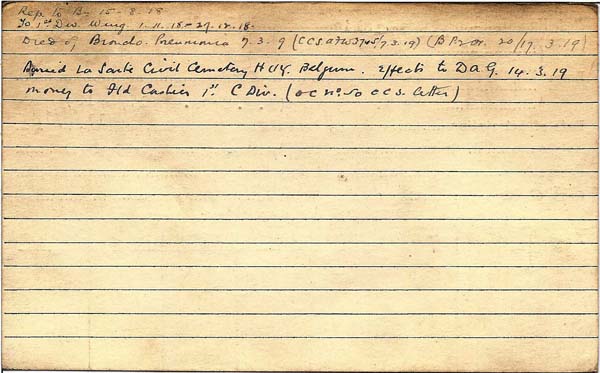 Rep to Bn 15-8-18
To 1st Div. Wing. 1.11.18-27.12.18.
Died of Broncho. Pneumonia 7.3.9 (CCS a7W3705/7.3.19) (B P2 or. 20/17.3.19)
Buried La Sarte Civil Cemetery HUY. Belgium. Effects to D.A.G. 14.3.19
money to Fld Cashier 1st C Div. (O C No. 50 CCS. letter)